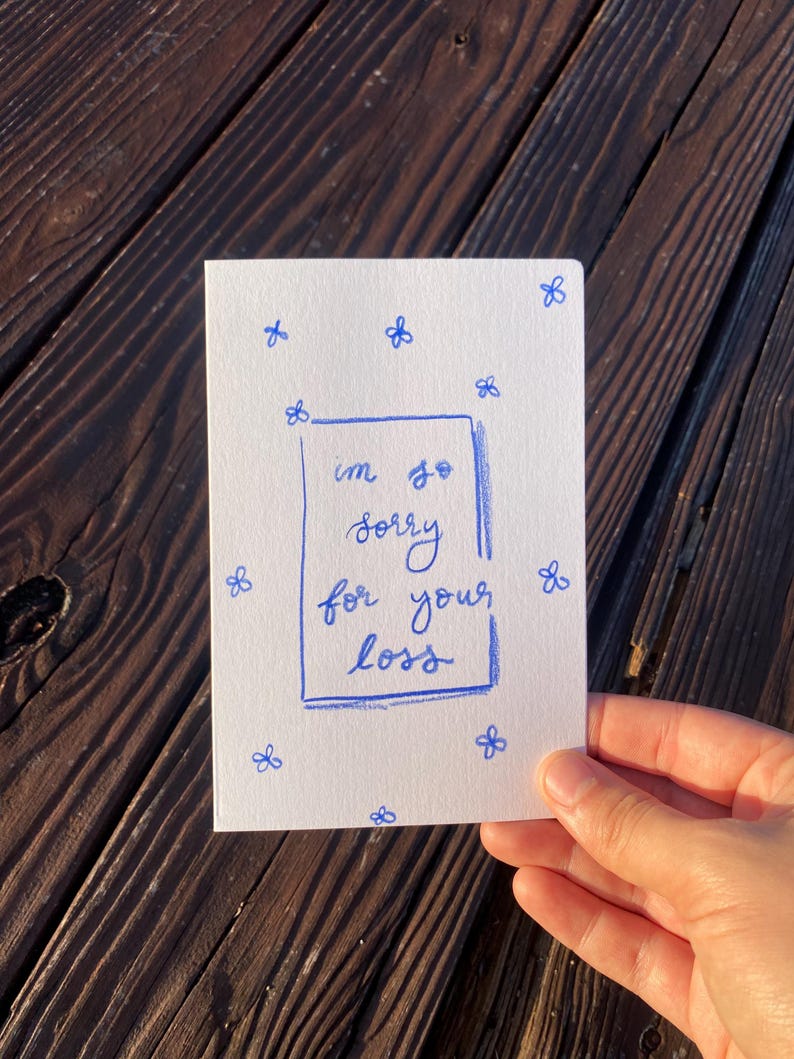 im so
sorry
for your
loss